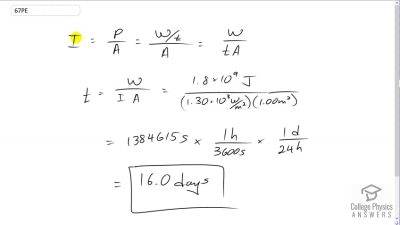 67PE
I = P/A = (W/t)/A = W/(tA)
t = W/(I A) = (1.8 × 10⁹ J)/((1.30 × 10³ W/m²)(1.00 m²))
= 1384615 s × 1h/3600s × 1d/24h
= 16.0 days
College Physics
ANSWERS